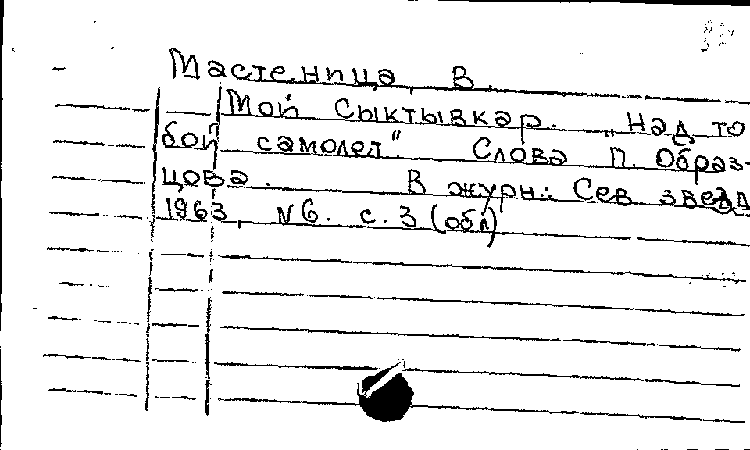 Мастеница, В.
Мой Сыктывкар. „Над то
бой самолет“. Слова П. Образ-
цова. В журн.: Сев звезда
1963, N6. с. 3 (обл)